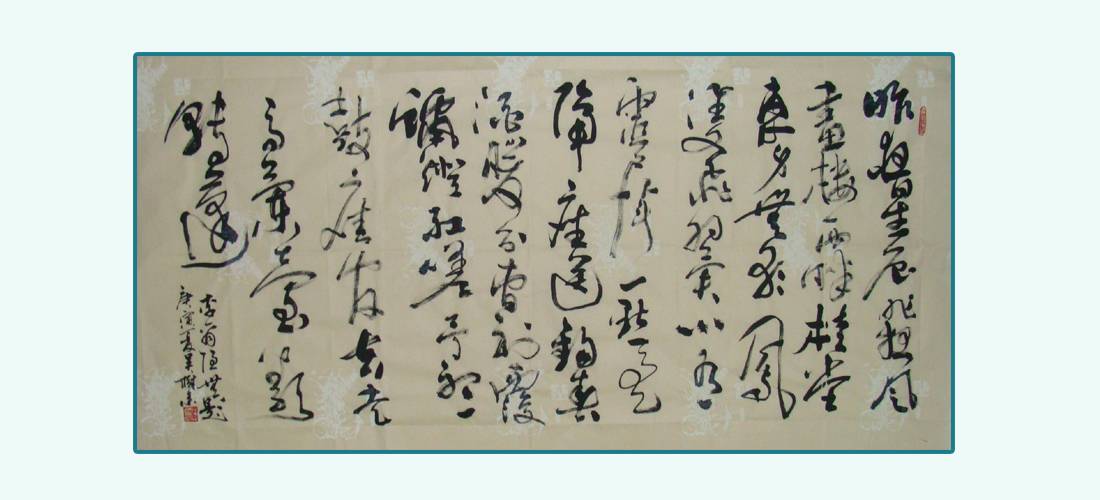 昨夜星辰昨夜風
畫樓西畔桂堂
東身無彩鳳
雙飛翼心有
靈犀一點通
隔座送鈎春
酒暖分曹射覆
蠟燈紅嗟予聽
鼓應官去走
馬蘭臺類
轉蓬
李商隱無題
庚寅夏吴